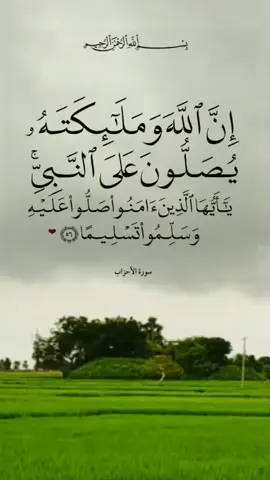 بِسْمِ ٱللَّهِ ٱلرَّحْمَٰنِ ٱلرَّحِيمِ
إِنَّ ٱللَّهَ وَمَلَٰٓئِكَتَهُۥ
يُصَلُّونَ عَلَى ٱلنَّبِىِّ ۚ
يَٰٓأَيُّهَا ٱلَّذِينَ ءَامَنُوا۟ صَلُّوا۟ عَلَيْهِ
وَسَلِّمُوا۟ تَسْلِيمًا ٥٦ ❤
سورة الأحزاب